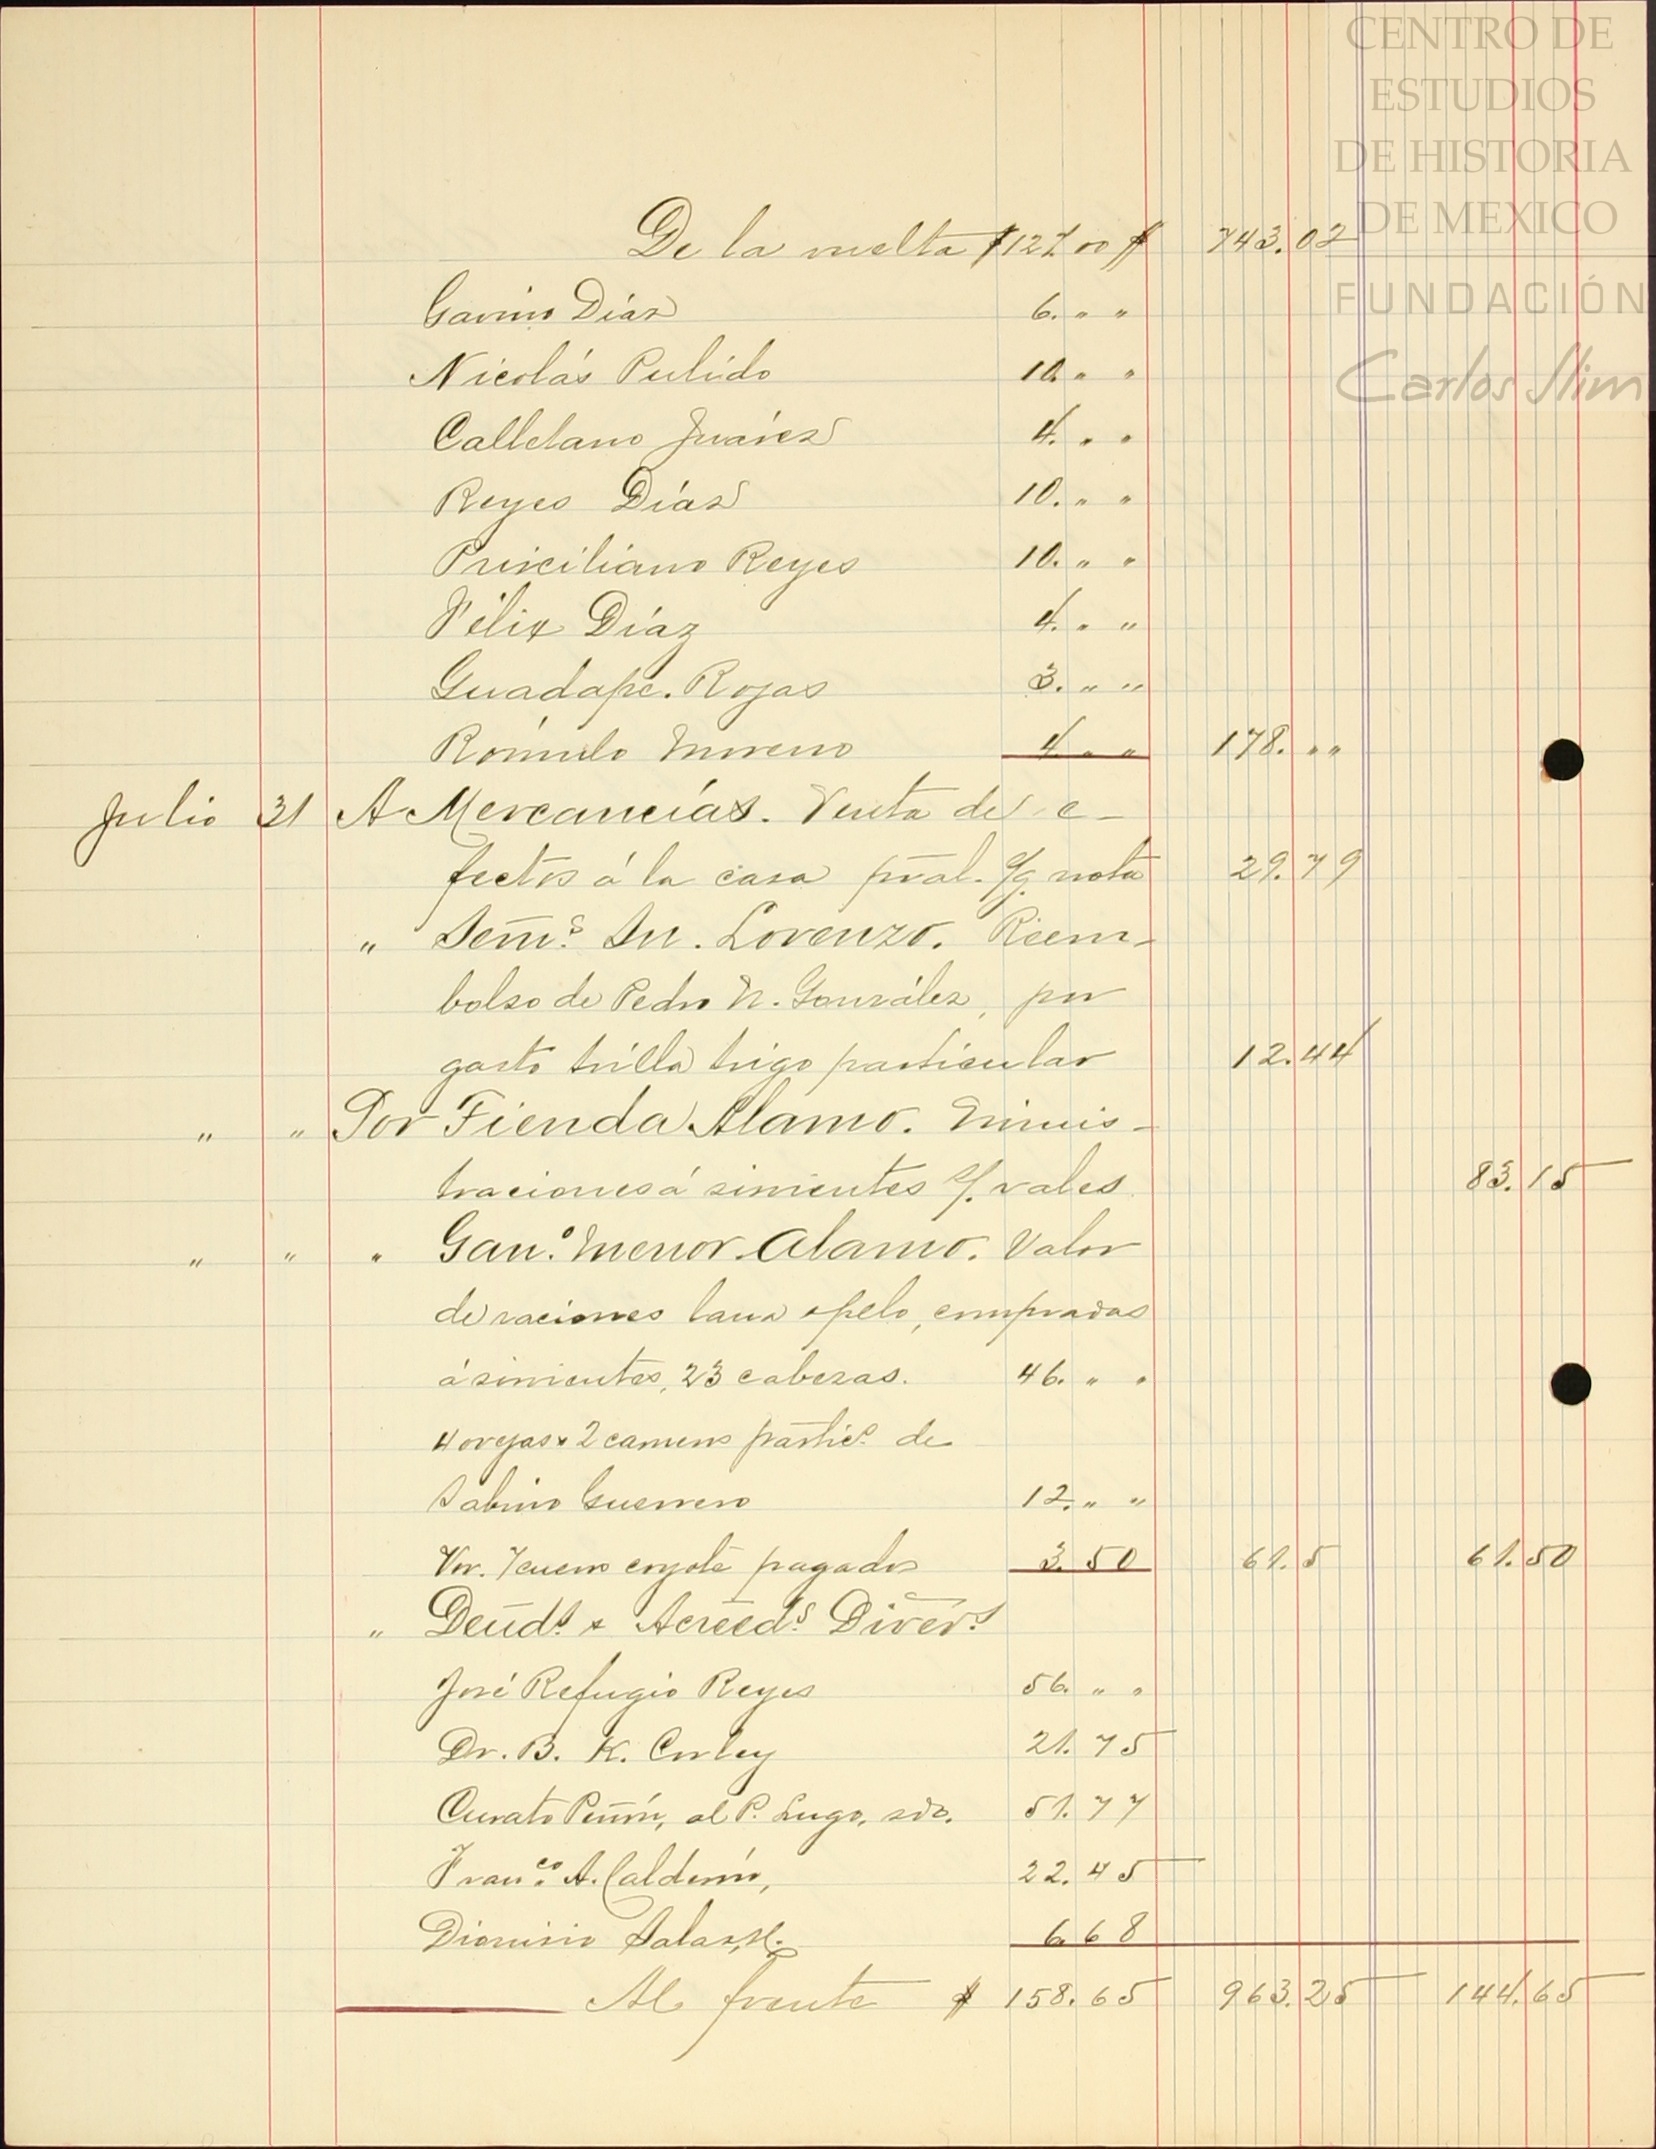 CENTRO DE
ESTUDIOS
DE HISTORIA
DE MEXICO
FUNDACIÓN
Carlos Slim
De la vuelta $127.00 $ 743.02
Gavino Díaz 6. " "
Nicolás Pulido 10. " "
Calletano Juárez 4. " "
Reyes Díaz 10. " "
Prisciliano Reyes 10. " "
Félix Díaz 4. " "
Guadape. Rojas 3. " "
Rómulo Moreno 4. " " 178. " "
Julio 31 A Mercancías. Venta de e-
fectos á la casa pral. s/g. nota 29.79
" Sem.s Sn. Lorenzo. Reem-
bolso de Pedro N. González, por
gasto trilla trigo particular 12.44
" " Por Tienda Alamo. Minis-
traciones á sirvientes s/. vales 83.15
" " " Gan.o Menor Alamo. Valor
de raciones lana y pelo, compradas
á sirvientes, 23 cabezas. 46. " "
4 ovejas y 2 carneros partics. de
Sabino Guerrero 12. " "
Vor. 7 cueros coyote pagados 3.50 61.5 61.50
" Deud.s y Acreed.s Divers.
José Refugio Reyes 56. " "
Dr. B. K. Corley 21.75
Curato Peñón, al P. Lugo, sdo. 51.77
Fran.co A. Calderón, 22.45
Dionisio Salas, 6.68
Al frente $ 158.65 963.25 144.65